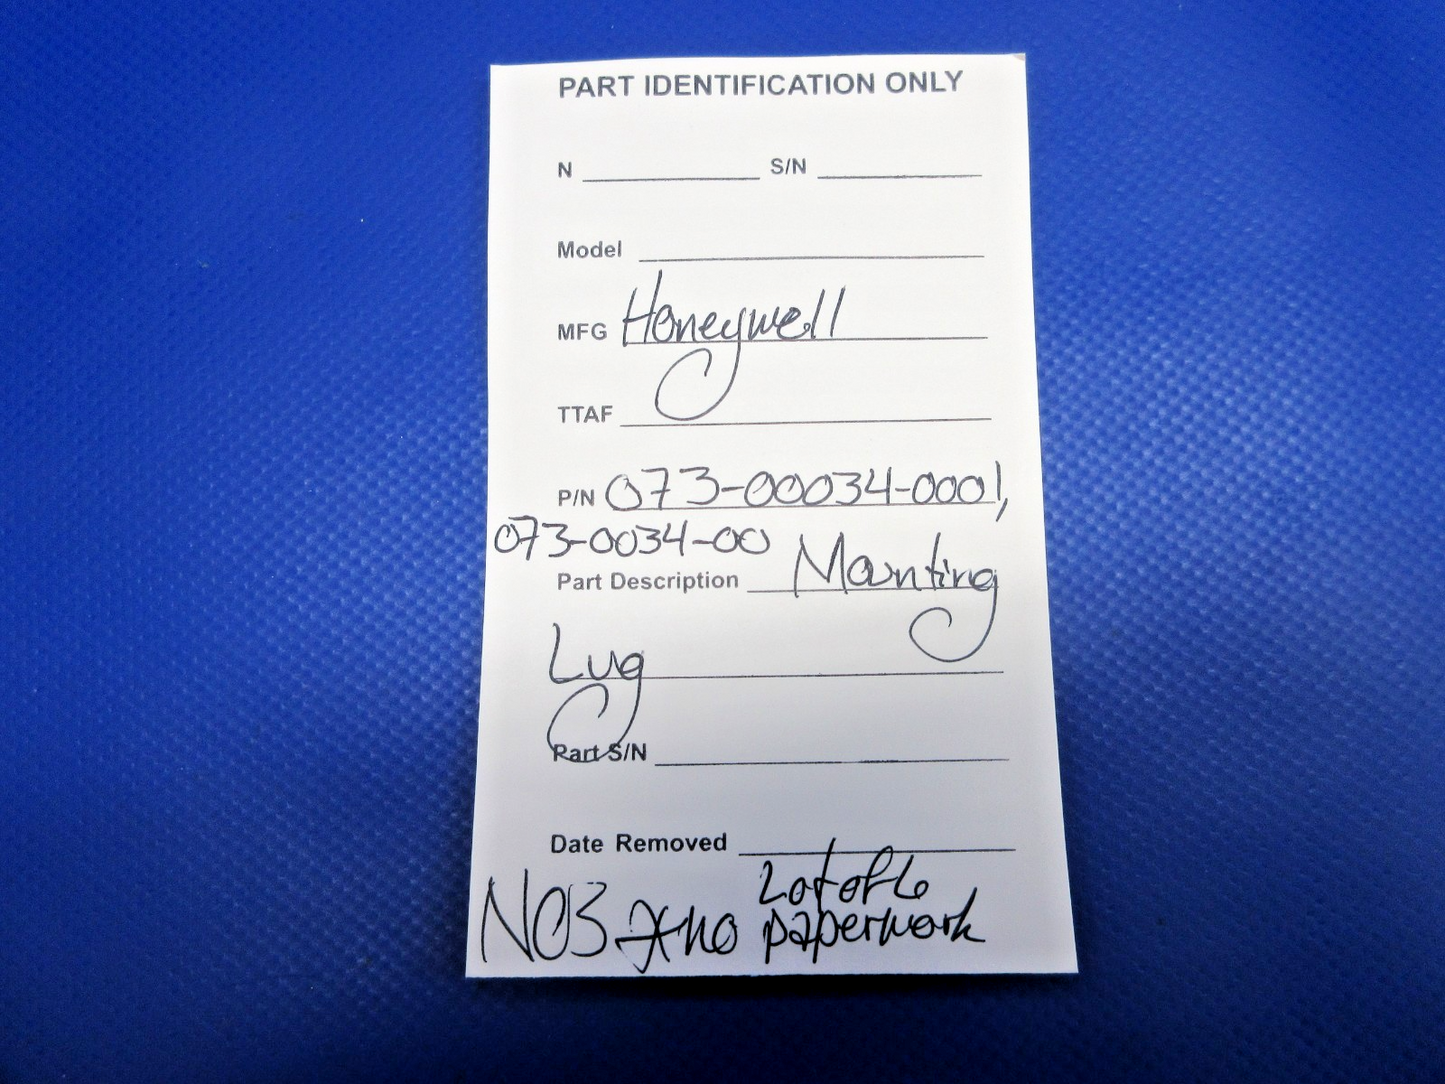 PART IDENTIFICATION ONLY
N S/N
Model
MFG Honeywell
TTAF
P/N 073-00034-0001,
073-0034-00
Part Description Mounting
Lug
Part S/N
Date Removed
Lot of 6
NOS no paperwork